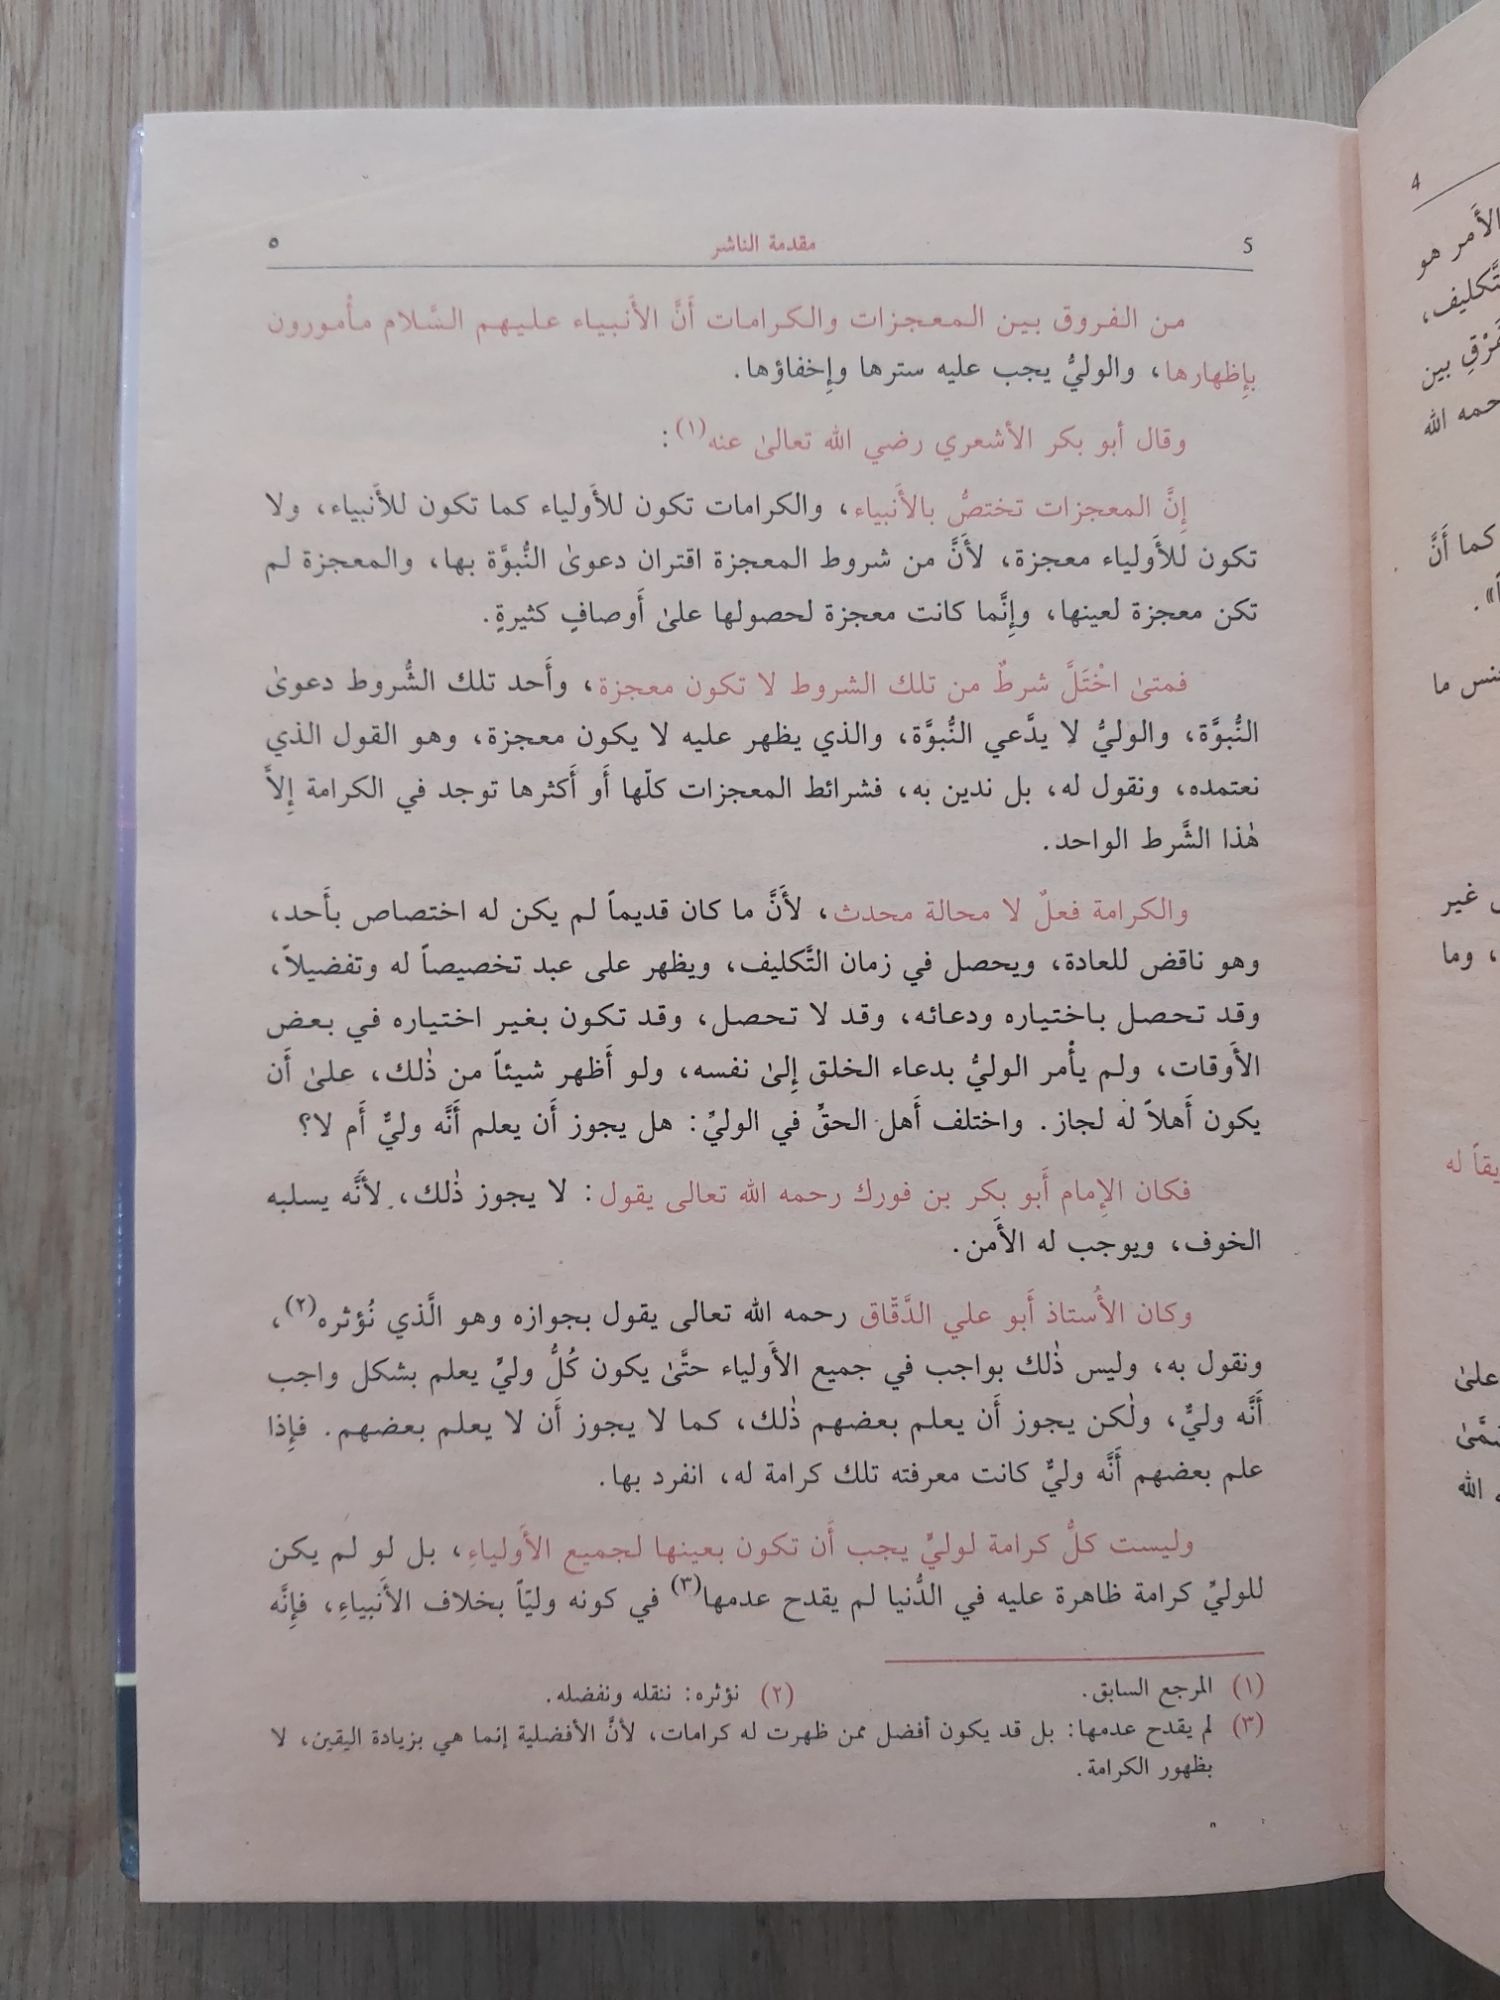 5 مقدمة الناشر ٥
من الفروق بين المعجزات والكرامات أَنَّ الأَنبياء عليهم السَّلام مأْمورون
بإِظهارها، والوليُّ يجب عليه سترها وإِخفاؤها.
وقال أبو بكر الأشعري رضي الله تعالىٰ عنه(١):
إِنَّ المعجزات تختصُّ بالأَنبياء، والكرامات تكون للأَولياء كما تكون للأَنبياء، ولا
تكون للأَولياء معجزة، لأَنَّ من شروط المعجزة اقتران دعوىٰ النُّبوَّة بها، والمعجزة لم
تكن معجزة لعينها، وإِنَّما كانت معجزة لحصولها علىٰ أَوصافٍ كثيرةٍ.
فمتىٰ اخْتَلَّ شرطٌ من تلك الشروط لا تكون معجزة، وأَحد تلك الشُّروط دعوىٰ
النُّبوَّة، والوليُّ لا يدَّعي النُّبوَّة، والذي يظهر عليه لا يكون معجزة، وهو القول الذي
نعتمده، ونقول له، بل ندين به، فشرائط المعجزات كلّها أَو أَكثرها توجد في الكرامة إِلاَّ
هٰذا الشَّرط الواحد.
والكرامة فعلٌ لا محالة محدث، لأَنَّ ما كان قديماً لم يكن له اختصاص بأَحد،
وهو ناقض للعادة، ويحصل في زمان التَّكليف، ويظهر على عبد تخصيصاً له وتفضيلاً،
وقد تحصل باختياره ودعائه، وقد لا تحصل، وقد تكون بغير اختياره في بعض
الأَوقات، ولم يأْمر الوليُّ بدعاء الخلق إِلىٰ نفسه، ولو أَظهر شيئاً من ذٰلك، علىٰ أَن
يكون أَهلاً له لجاز. واختلف أَهل الحقِّ في الوليِّ: هل يجوز أَن يعلم أَنَّه وليٌّ أَم لا؟
فكان الإِمام أَبو بكر بن فورك رحمه الله تعالى يقول: لا يجوز ذٰلك، لأَنَّه يسلبه
الخوف، ويوجب له الأَمن.
وكان الأُستاذ أَبو علي الدَّقَّاق رحمه الله تعالى يقول بجوازه وهو الَّذي نُؤثره(٢)،
ونقول به، وليس ذٰلك بواجب في جميع الأَولياء حتَّىٰ يكون كُلُّ وليٍّ يعلم بشكل واجب
أَنَّه وليٌّ، ولٰكن يجوز أَن يعلم بعضهم ذٰلك، كما لا يجوز أَن لا يعلم بعضهم. فإِذا
علم بعضهم أَنَّه وليٌّ كانت معرفته تلك كرامة له، انفرد بها.
وليست كلُّ كرامة لوليٍّ يجب أَن تكون بعينها لجميع الأَولياءِ، بل لو لم يكن
للوليِّ كرامة ظاهرة عليه في الدُّنيا لم يقدح عدمها(٣) في كونه وليّاً بخلاف الأَنبياءِ، فإِنَّه
(١) المرجع السابق. (٢) نؤثره: ننقله ونفضله.
(٣) لم يقدح عدمها: بل قد يكون أفضل ممن ظهرت له كرامات، لأنَّ الأفضلية إنما هي بزيادة اليقين، لا
بظهور الكرامة.
4
الأَمر هو
تَّكليف،
بين
حمه الله
كما أَنَّ
ما
غير
، وما
له
علىٰ
الله